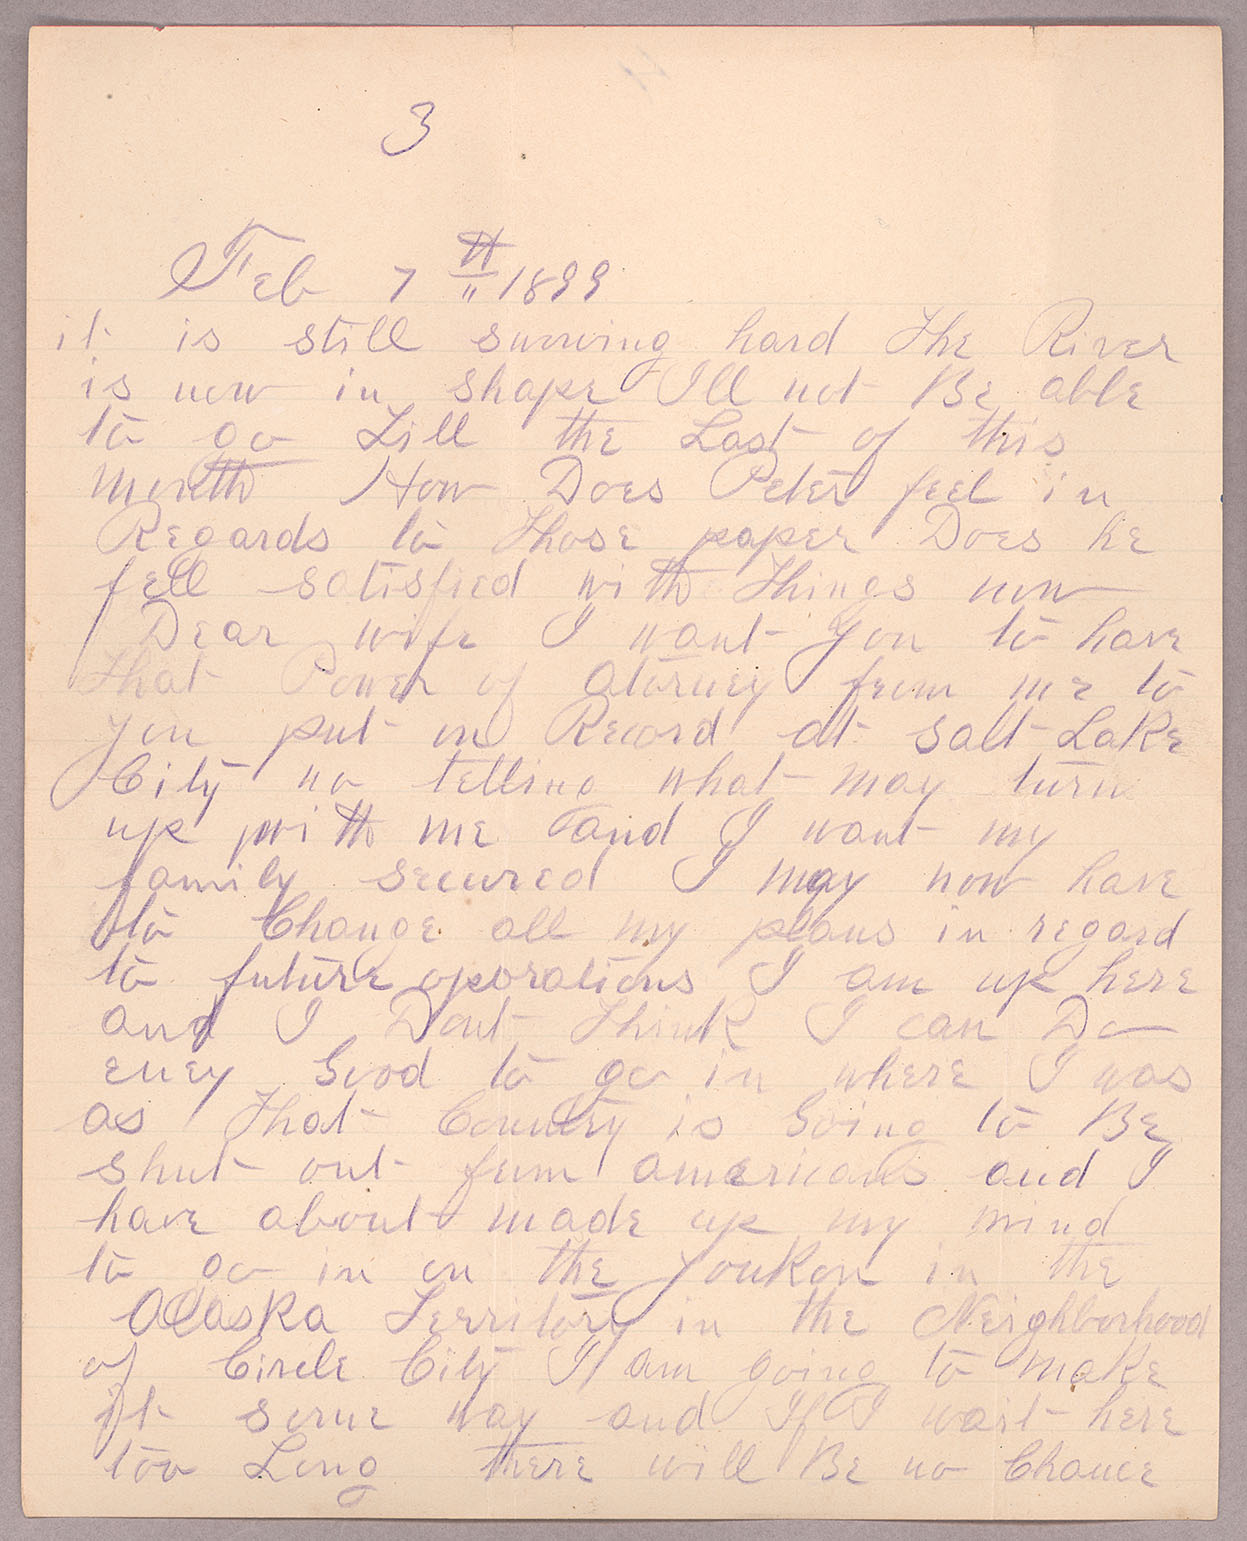 3
Feb 7th 1899
it is still snowing hard The River
is now in shape Ill not Be able
to go Till the Last of this
month How Does Peter feel in
Regards to Those paper Does he
fell satisfied with Things now
Dear wife I want you to have
That Power of atorney from me to
you put on Record at Salt Lake
City no telling what may turn
up with me and I want my
family secured I may now have
to Change all my plans in regard
to future oporations I am up here
and I Dont Think I can Do
eney Good to go in where I was
as That Country is Going to Be
shut out from americans and I
have about made up my mind
to go in on the youkon in the
Alaska Territory in the Neighborhood
of Circle City I am going to make
it some way and If I wait here
too Long there will Be no Chance